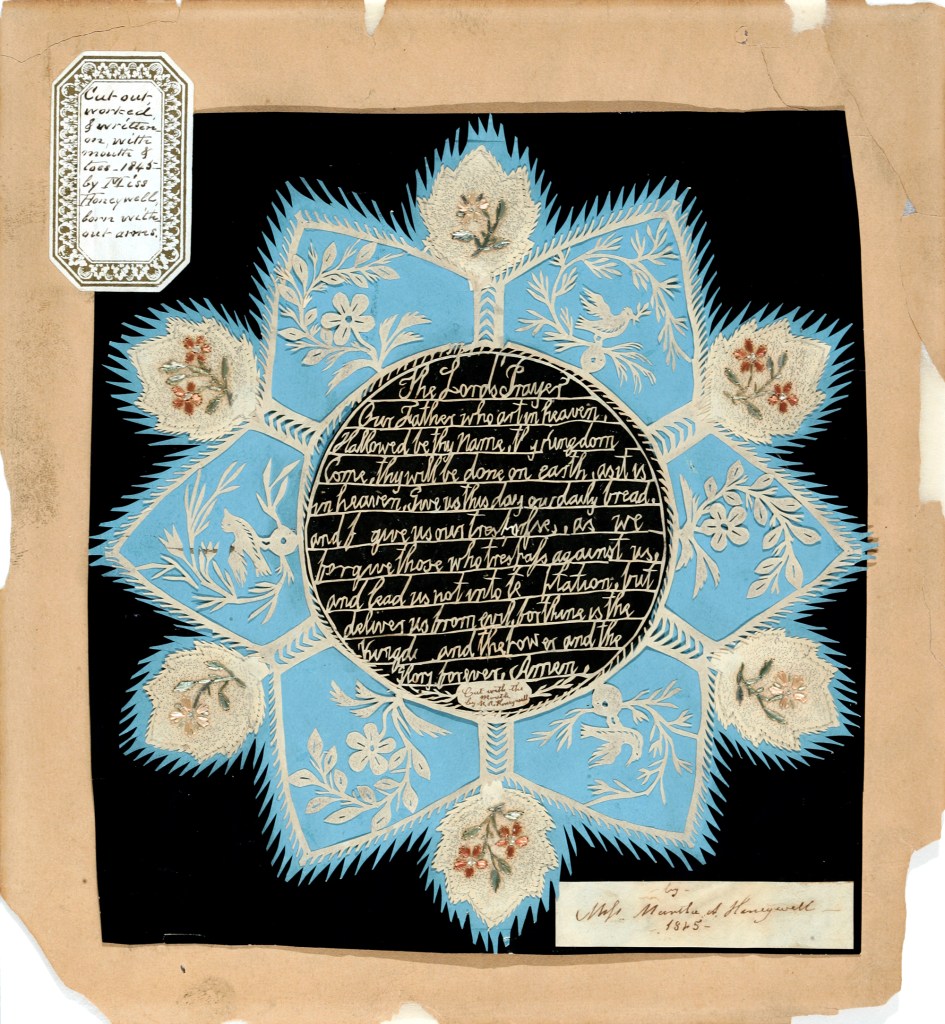 Cut out
worked,
& written
on, with
mouth &
toes - 1845 -
by Miss
Honeywell,
born with
out arms.
The Lords Prayer
Our Father who art in heaven,
Hallowed be thy Name, thy Kingdom
Come, thy will be done on earth, as it is
in heaven. Give us this day our daily bread.
and f give us our trespasse, as we
forgive those who trespass against us,
and lead us not into te ptation, but
deliver us from evil, for thine is the
Kingd and the power and the
Glory forever. Amen.
Cut with the
Mouth
by M. A. Honeywell
- by -
Miss Martha A. Honeywell -
- 1845 -